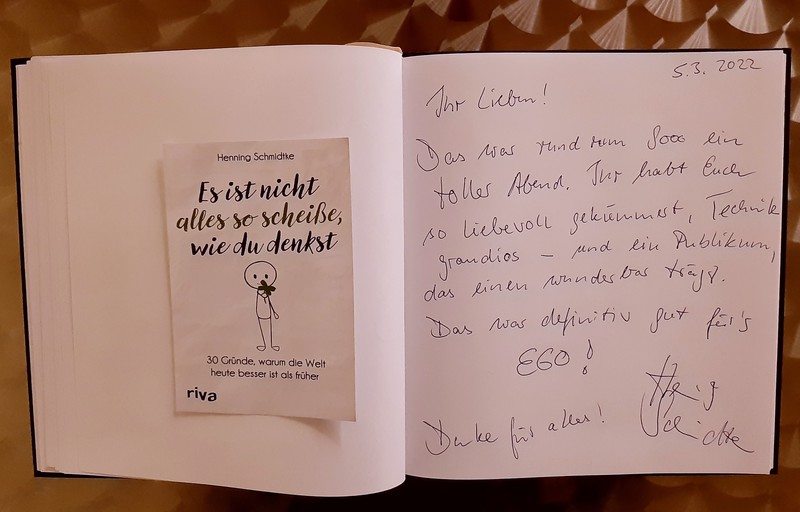 Henning Schmidtke
Es ist nicht
alles so scheiße,
wie du denkst
30 Gründe, warum die Welt
heute besser ist als früher
riva
5.3. 2022
Ihr Lieben!
Das war rund rum sooo ein
toller Abend. Ihr habt Euch
so liebevoll gekümmert, Technik
grandios – und ein Publikum,
das einen wunderbar trägt.
Das war definitiv gut für's
EGO!
Danke für alles!
Henning
Schmidtke